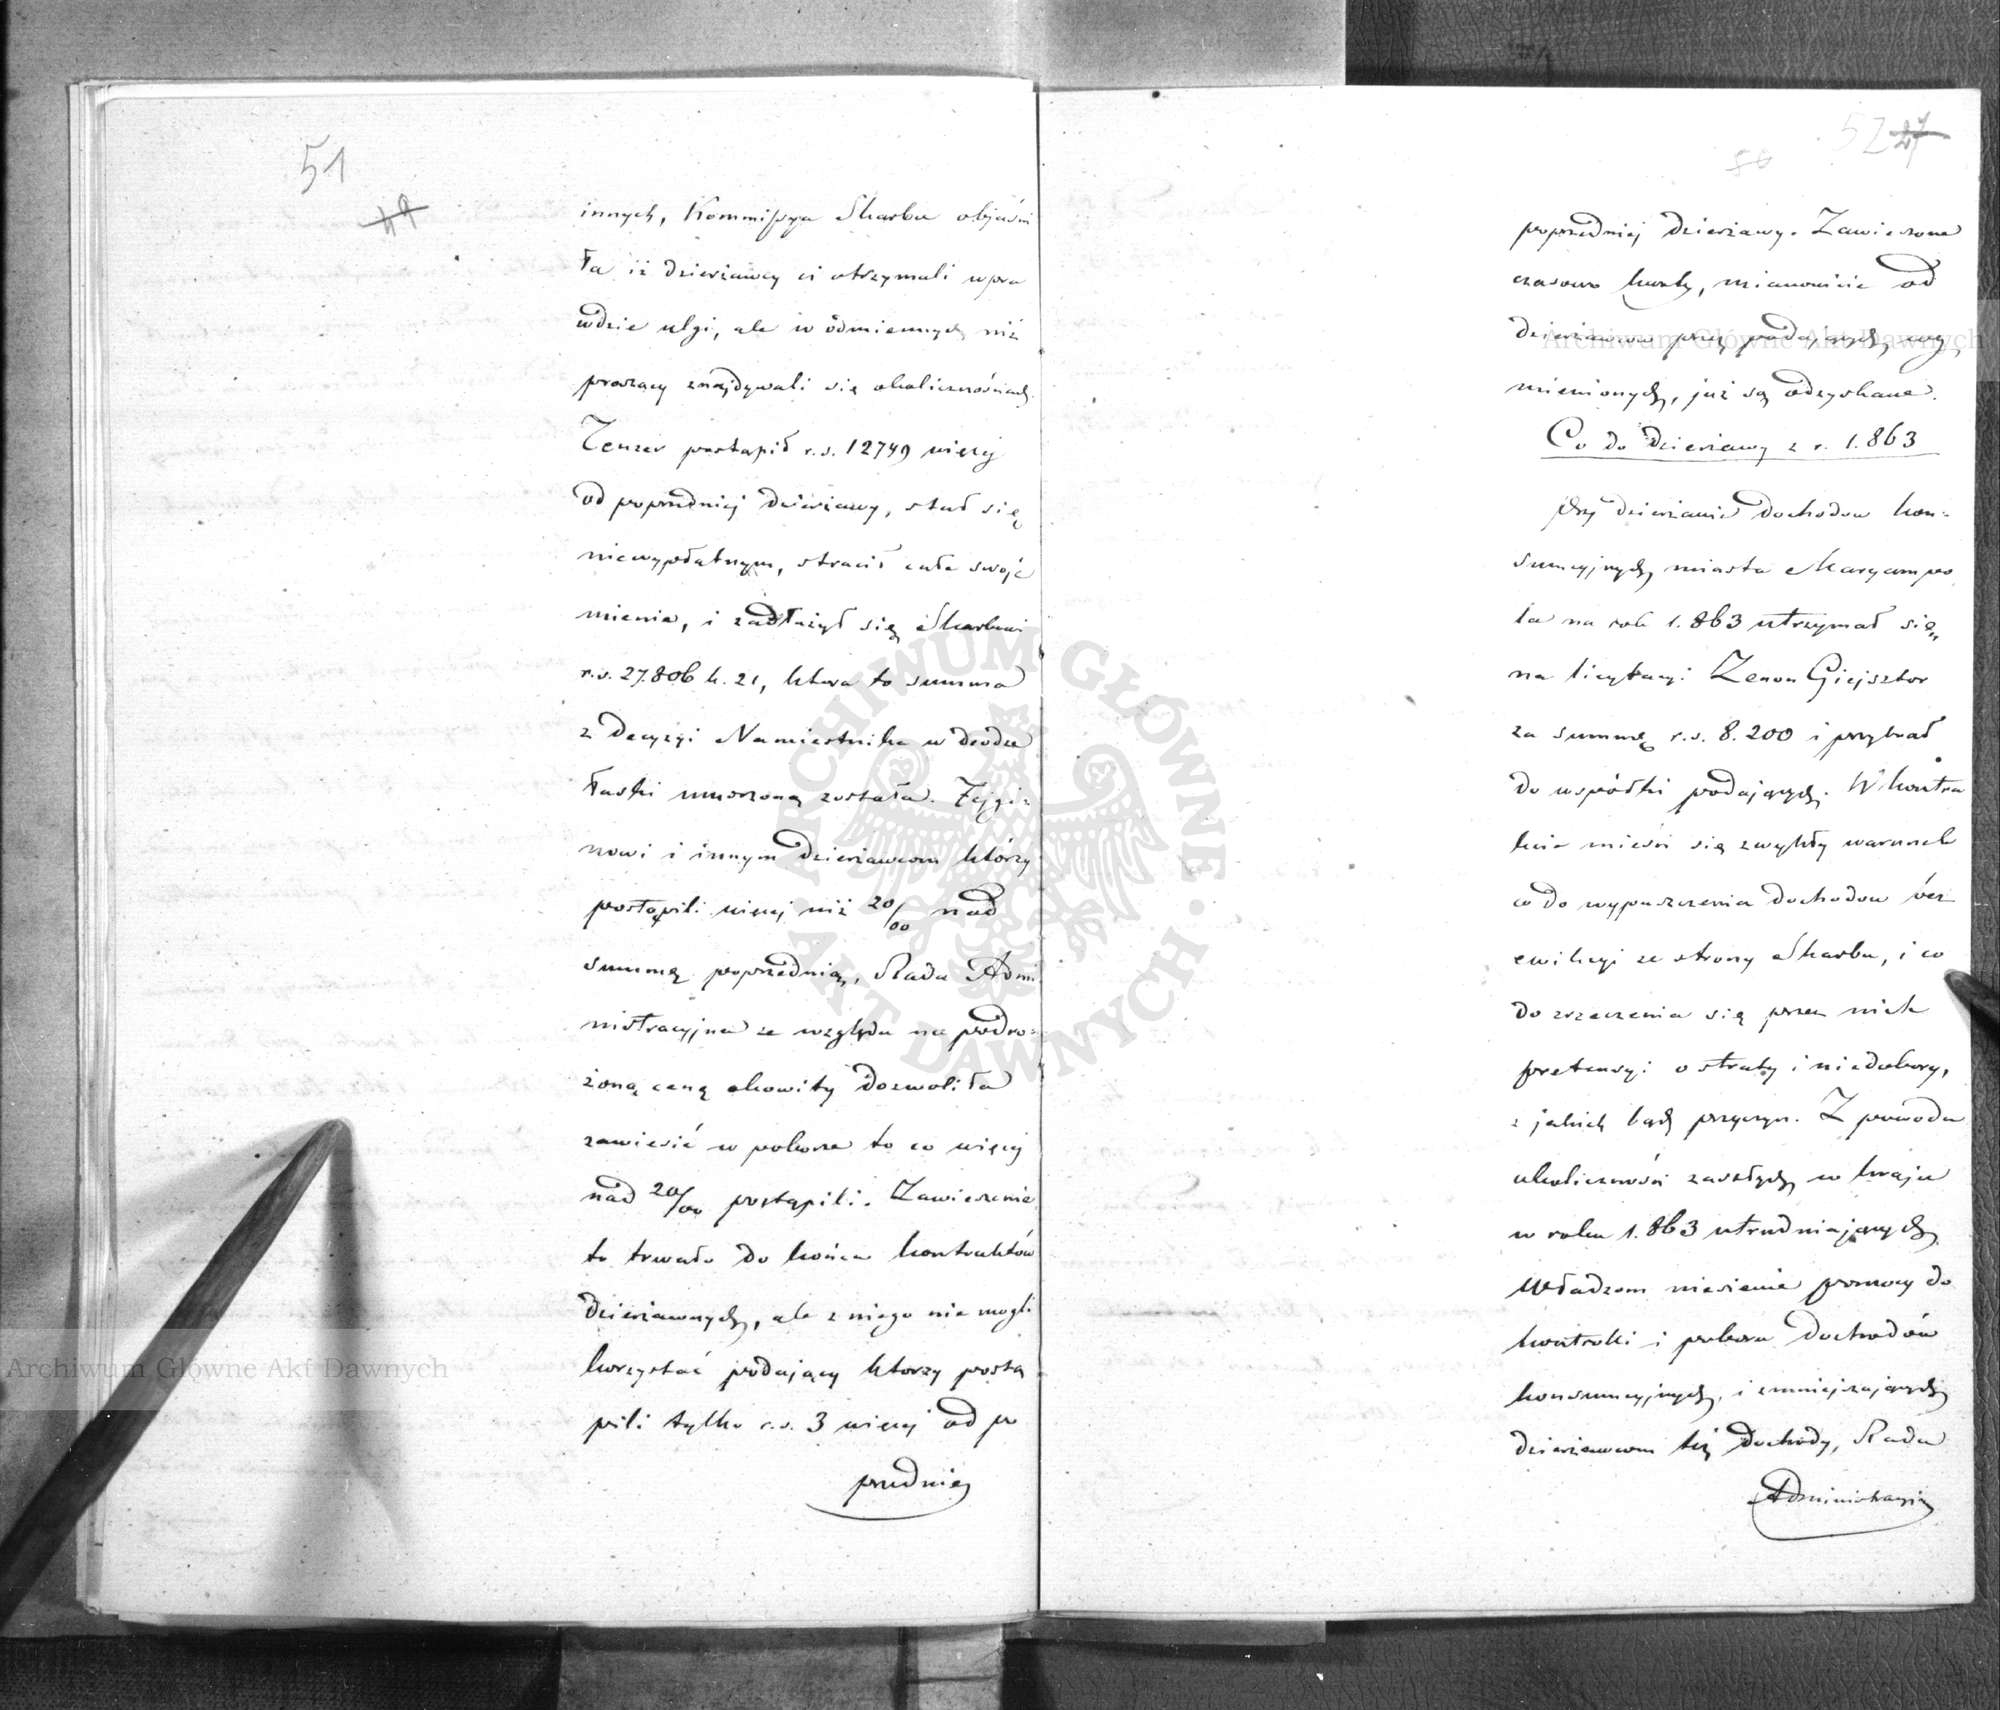 51
49
innych, Kommissya Skarbu objaśni
ła iż dzierżawcy ci otrzymali wpra
wdzie ulgi, ale w odmiennych niż
proszący znajdywali się okolicznościach.
Tenzer postąpił r.s. 12749 więcej
od poprzedniej dzierżawy, stał się
niewypłatnym, stracił całe swoje
mienie, i zadłużył się Skarbowi
r.s. 27.806 k. 21, która to summa
z Decyzyi Namiestnika w drodze
łaski umorzoną została.
nowi i innym dzierżawcom którzy
postąpili więcej niż 20/00 nad
summę poprzednią, Rada Admi
nistracyjna ze względu na podro-
żoną cenę okowity dozwoliła
zawiesić w poborze to co więcej
nad 20/00 postąpili. Zawieszenie
to trwało do końca kontraktów
dzierżawnych, ale z niego nie mogli
korzystać podający ktorzy postą
pili tylko r.s. 3 więcej od po
przedniej
52 27
50
poprzedniej dzierżawy. Zawieszone
czasowo kwoty, mianowicie od
dzierżawców przez podających wy
mienionych, już są odzyskane.
Co do Dzierżawy z r. 1.863
Przy dzierżawie dochodow kon-
sumcyjnych miasta Maryampo
la na rok 1.863 utrzymał się
na licytacyi Zenon Giejsztor
za summę r.s. 8.200 i przybrał
do wspólki podających. W kontra
kcie mieści się zwykły warunek
co do wypuszczenia dochodow bez
ewikcyi ze strony Skarbu, i co
do zrzeczenia się przez nich
pretensyi o straty i niedobory,
z jakich bądź przyczyn. Z powodu
okoliczności zaszłych w kraju
w roku 1.863 utrudniających
Władzom niesienie pomocy do
kontrolli i poboru dochodów
konsumcyjnych, i zmniejszających
dzierżawcom też dochody, Rada
Administracyjna
Archiwum Główne Akt Dawnych
Archiwum Główne Akt Dawnych
ARCHIWUM GŁÓWNE AKT DAWNYCH